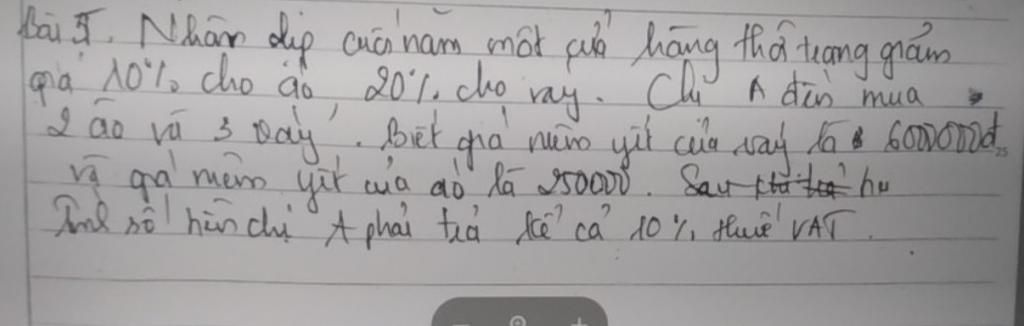 Bài 5. Nhân dịp cuối năm một cửa hàng thời trang giảm
giá 10% cho áo 20% cho váy. Chị A đến mua
2 áo và 3 váy. Biết giá niêm yết của váy là 600000đ
và giá niêm yết của áo là 250000.
Tính số tiền chị A phải trả kể cả 10% thuế VAT.